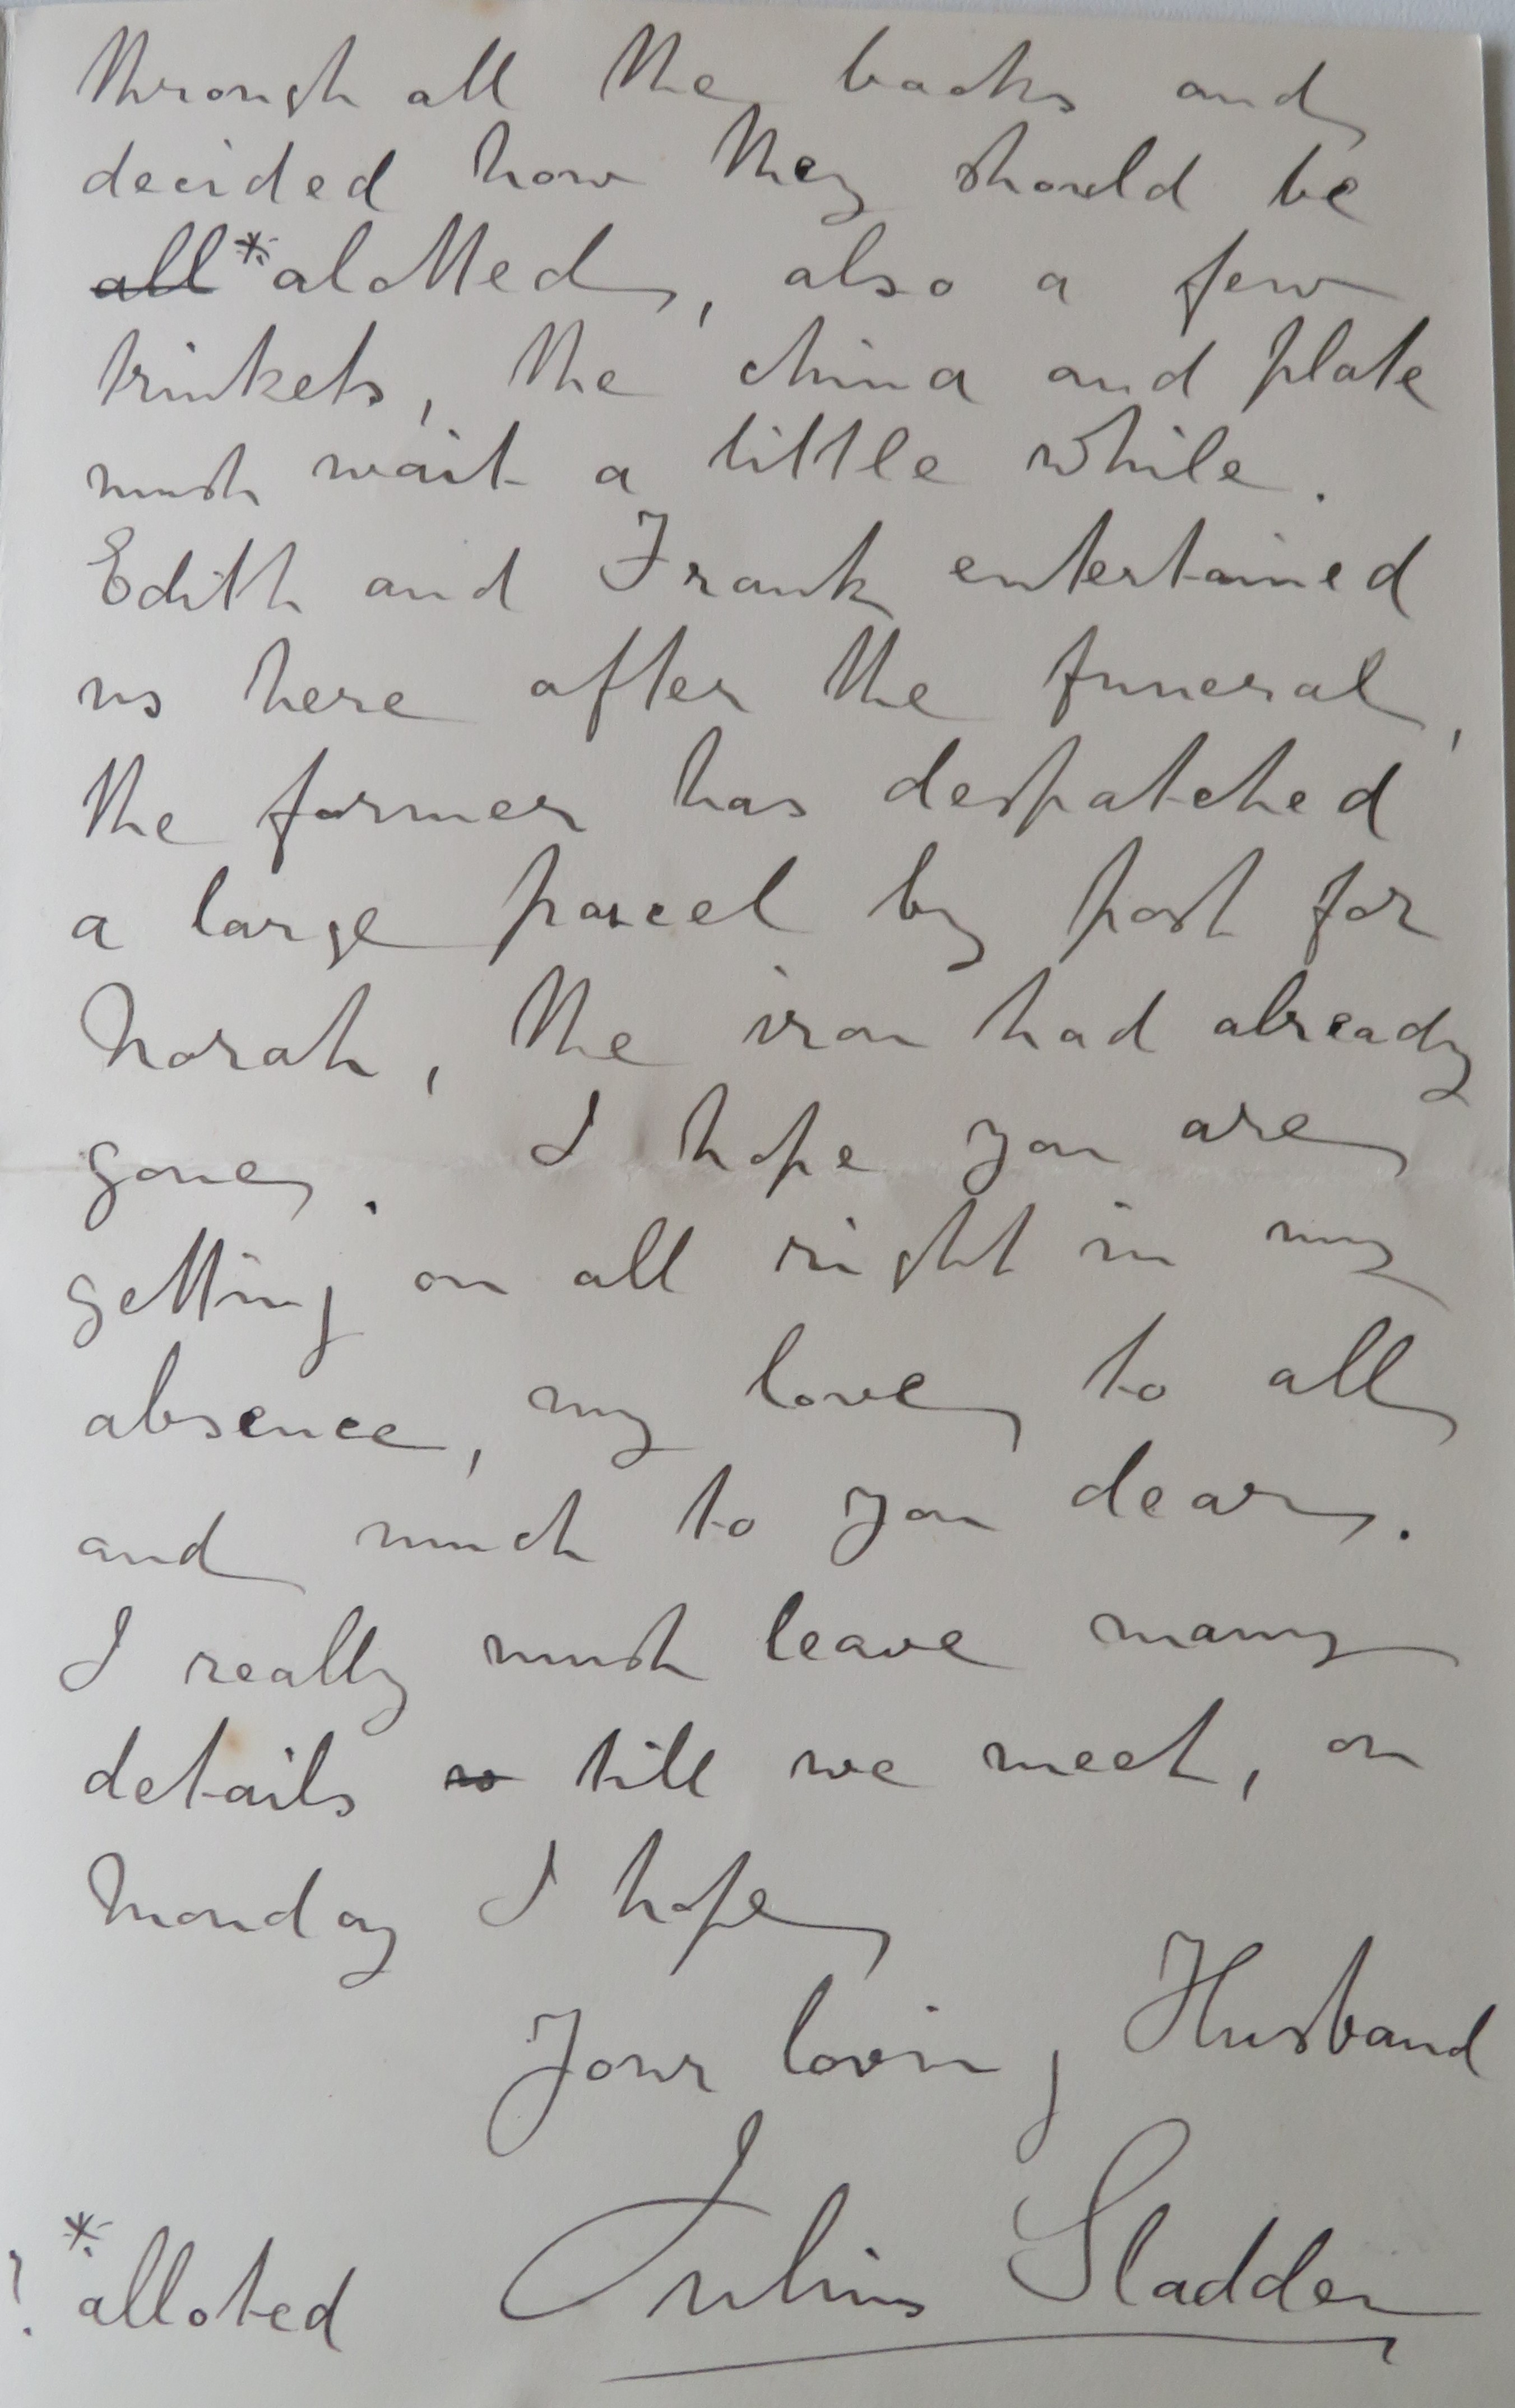 through all the books and
decided how they should be
all * alotted, also a few
trinkets, the china and plate
must wait a little while.
Edith and Frank entertained
us here after the funeral,
the former has despatched
a large parcel by post for
Norah, the iron had already
gone. I hope you are
getting on all right in my
absence, my love to all
and much to you dear.
I really must leave many
details till we meet, on
Monday I hope
Your loving Husband
Julius Sladden
* ? alloted